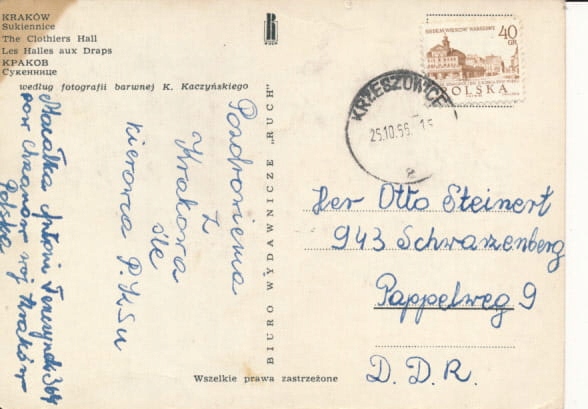 KRAKÓW
Sukiennice
The Clothiers Hall
Les Halles aux Draps
КРАКОВ
Сукеннице
według fotografii barwnej K. Kaczyńskiego
RUCH
SIEDEM WIEKÓW WARSZAWY
40
GR
POLSKA
KRZESZOWICE
25.10.66
Pozdrowienia
z
Krakowa
śle
kierowca P.K.Su
Antoni
pow Chrzanów woj Kraków
Polska
BIURO WYDAWNICZE „RUCH"
Her Otto Steinert
943 Schwarzenberg
Pappelweg 9
D. D. R.
Wszelkie prawa zastrzeżone